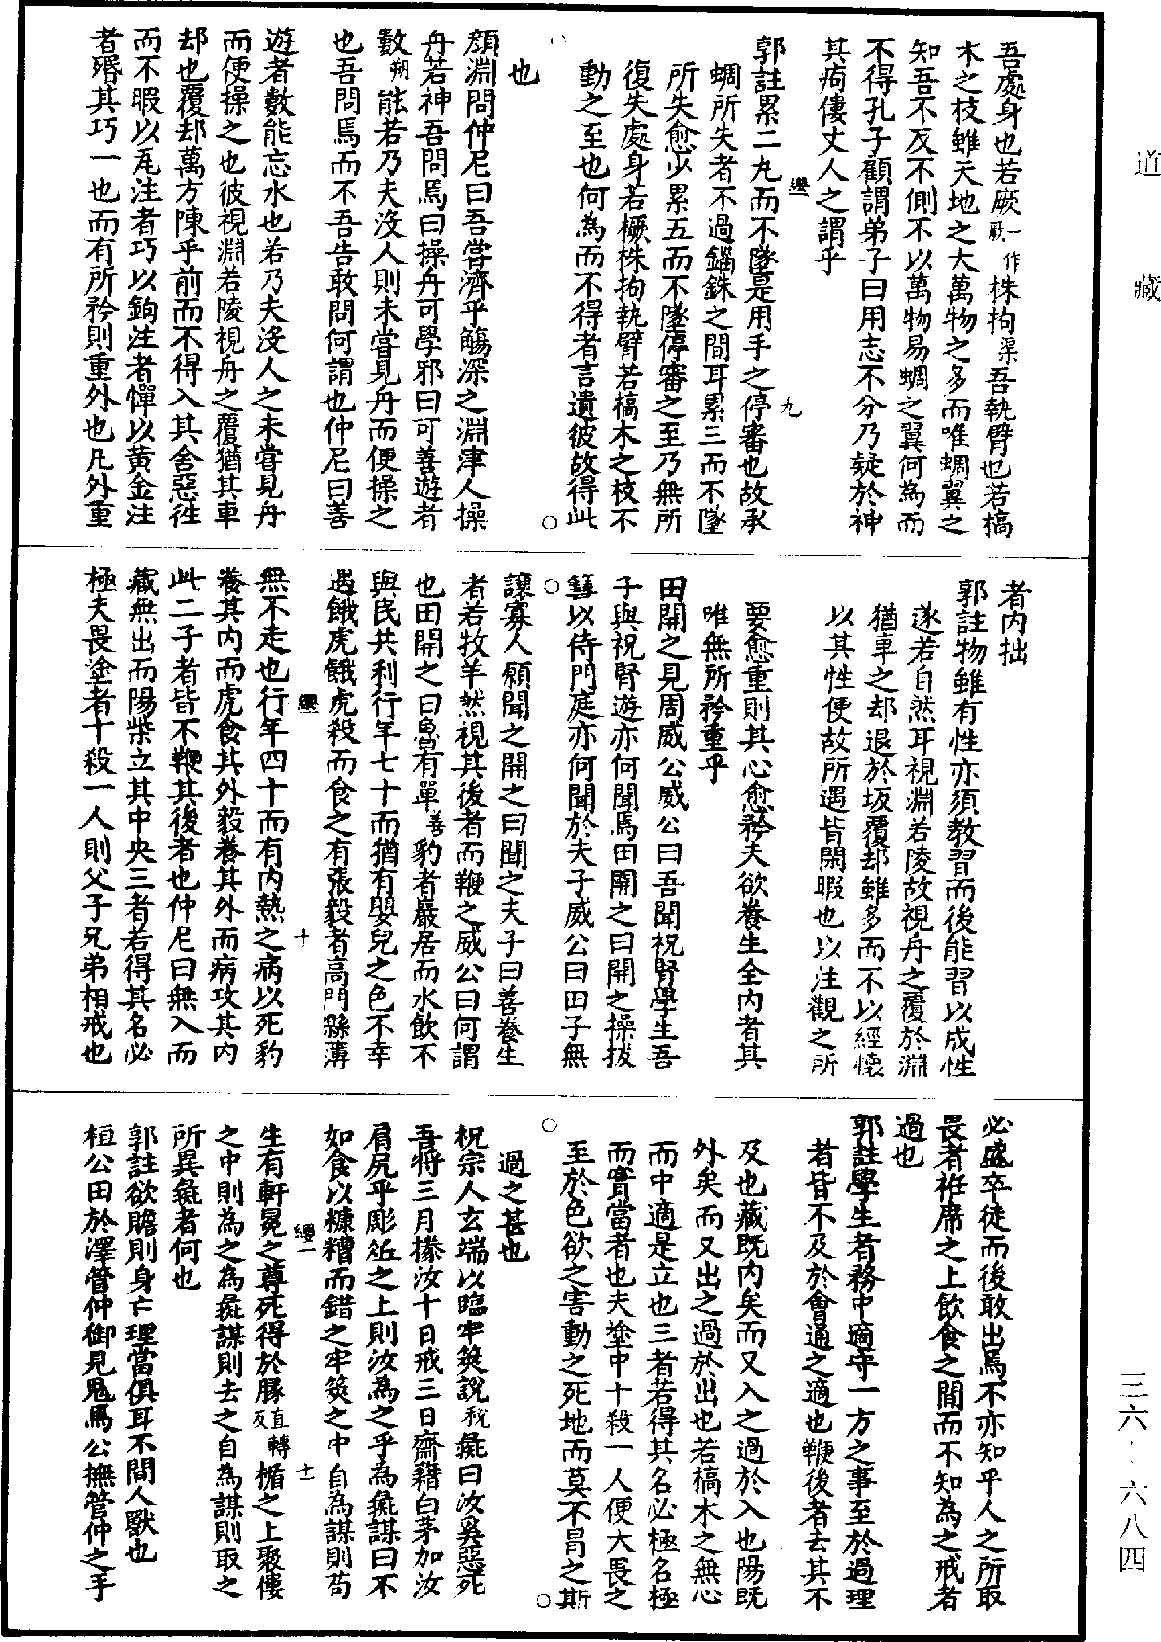 道藏
吾處身也若厥一作厥株拘渠吾執臂也若槁
木之枝雖天地之大萬物之多而唯蜩翼之
知吾不反不側不以萬物易蜩之翼何為而
不得孔子顧謂弟子曰用志不分乃疑於神
其痀僂丈人之謂乎
郭註累二丸而不墜是用手之停審也故承
蜩所失者不過錙銖之間耳累三而不墜
所失愈少累五而不墜停審之至乃無所
復失處身若橛株拘執臂若槁木之枝不
動之至也何為而不得者言遺彼故得此
也
顏淵問仲尼曰吾嘗濟乎觴深之淵津人操
舟若神吾問焉曰操舟可學邪曰可善遊者
數朔能若乃夫沒人則未嘗見舟而便操之
也吾問焉而不吾告敢問何謂也仲尼曰善
遊者數能忘水也若乃夫沒人之未嘗見舟
而便操之也彼視淵若陵視舟之覆猶其車
却也覆却萬方陳乎前而不得入其舍惡往
而不暇以瓦注者巧以鉤注者憚以黃金注
者殙其巧一也而有所矜則重外也凡外重
九
者內拙
郭註物雖有性亦須教習而後能習以成性
遂若自然耳視淵若陵故視舟之覆於淵
猶車之却退於坂覆却雖多而不以經懷
以其性便故所遇皆閑暇也以注觀之所
要愈重則其心愈矜夫欲養生全內者其
唯無所矜重乎
田開之見周威公威公曰吾聞祝腎學生吾
子與祝腎遊亦何聞焉田開之曰開之操拔
篲以侍門庭亦何聞於夫子威公曰田子無
讓寡人願聞之開之曰聞之夫子曰善養生
者若牧羊然視其後者而鞭之威公曰何謂
也田開之曰魯有單善豹者巖居而水飲不
與民共利行年七十而猶有嬰兒之色不幸
遇餓虎餓虎殺而食之有張毅者高門縣薄
無不走也行年四十而有內熱之病以死豹
養其內而虎食其外毅養其外而病攻其內
此二子者皆不鞭其後者也仲尼曰無入而
藏無出而陽柴立其中央三者若得其名必
極夫畏塗者十殺一人則父子兄弟相戒也
十
必盛卒徒而後敢出焉不亦知乎人之所取
畏者袵席之上飲食之間而不知為之戒者
過也
郭註學生者務中適守一方之事至於過理
者皆不及於會通之適也鞭後者去其不
及也藏既內矣而又入之過於入也陽既
外矣而又出之過於出也若槁木之無心
而中適是立也三者若得其名必極名極
而實當者也夫塗中十殺一人便大畏之
至於色欲之害動之死地而莫不冒之斯
過之甚也
祝宗人玄端以臨牢筴說稅彘曰汝奚惡死
吾將三月㹖汝十日戒三日齋藉白茅加汝
肩尻乎彫俎之上則汝為之乎為彘謀曰不
如食以糠糟而錯之牢筴之中自為謀則苟
生有軒冕之尊死得於腞直轉反楯之上聚僂
之中則為之為彘謀則去之自為謀則取之
所異彘者何也
郭註欲贍則身亡理當俱耳不間人獸也
桓公田於澤管仲御見鬼焉公撫管仲之手
十一
三六·六八四